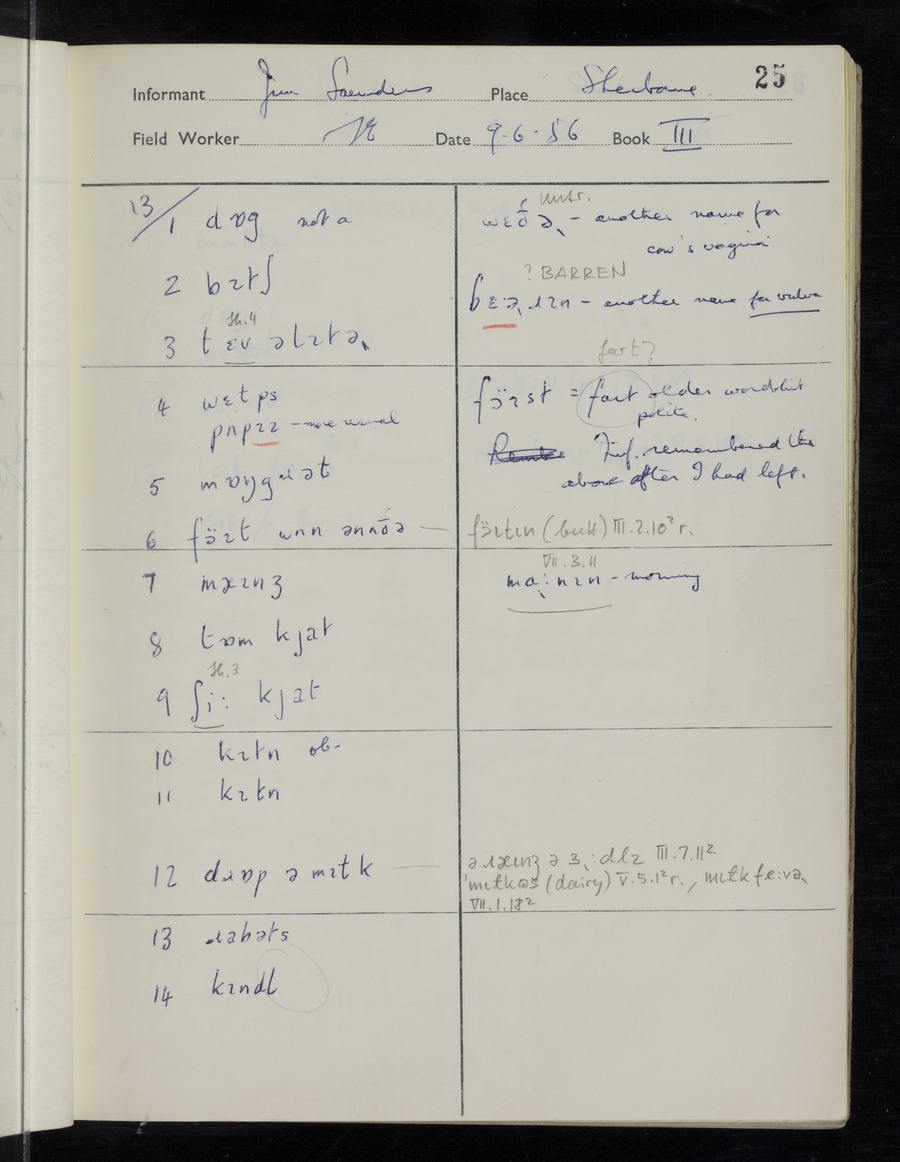 25
Informant Jim Saunders Place Sherborne.
Field Worker Date 9-6-56 Book III
13/
1 dɒg not a
2 bɪtʃ
Sh.4
3 t ɛv əlɪtə
4 wɛlps
pʌpɪz – more usual
5 mɒŋgɹət
6 fäɪt wʌn ənʌðə
7 mæɪnʒ
8 tɒm kjat
Sh.3
9 ʃi: kjat
10 kɪtn ob-
11 kɪtn
12 dɹɒp ə mɪlk
13 ɹabəts
14 kɪndl
untr.
wɛðə – another name for
cow's vagina
? BARREN
bɛəɹɪn – another name for vulva
fart?
= fart older word but
polite.
Inf. remembered the
above after I had left.
fäɪtɪn (bull) III.2.10² r.
VII.3.11
ma:nɪn – morning
ə ɹæɪnʒ ə ʒ:dlz III.7.11²
'mɪlkəs (dairy) V.5.1² r., mɪlk fe:və
VII.1.18²